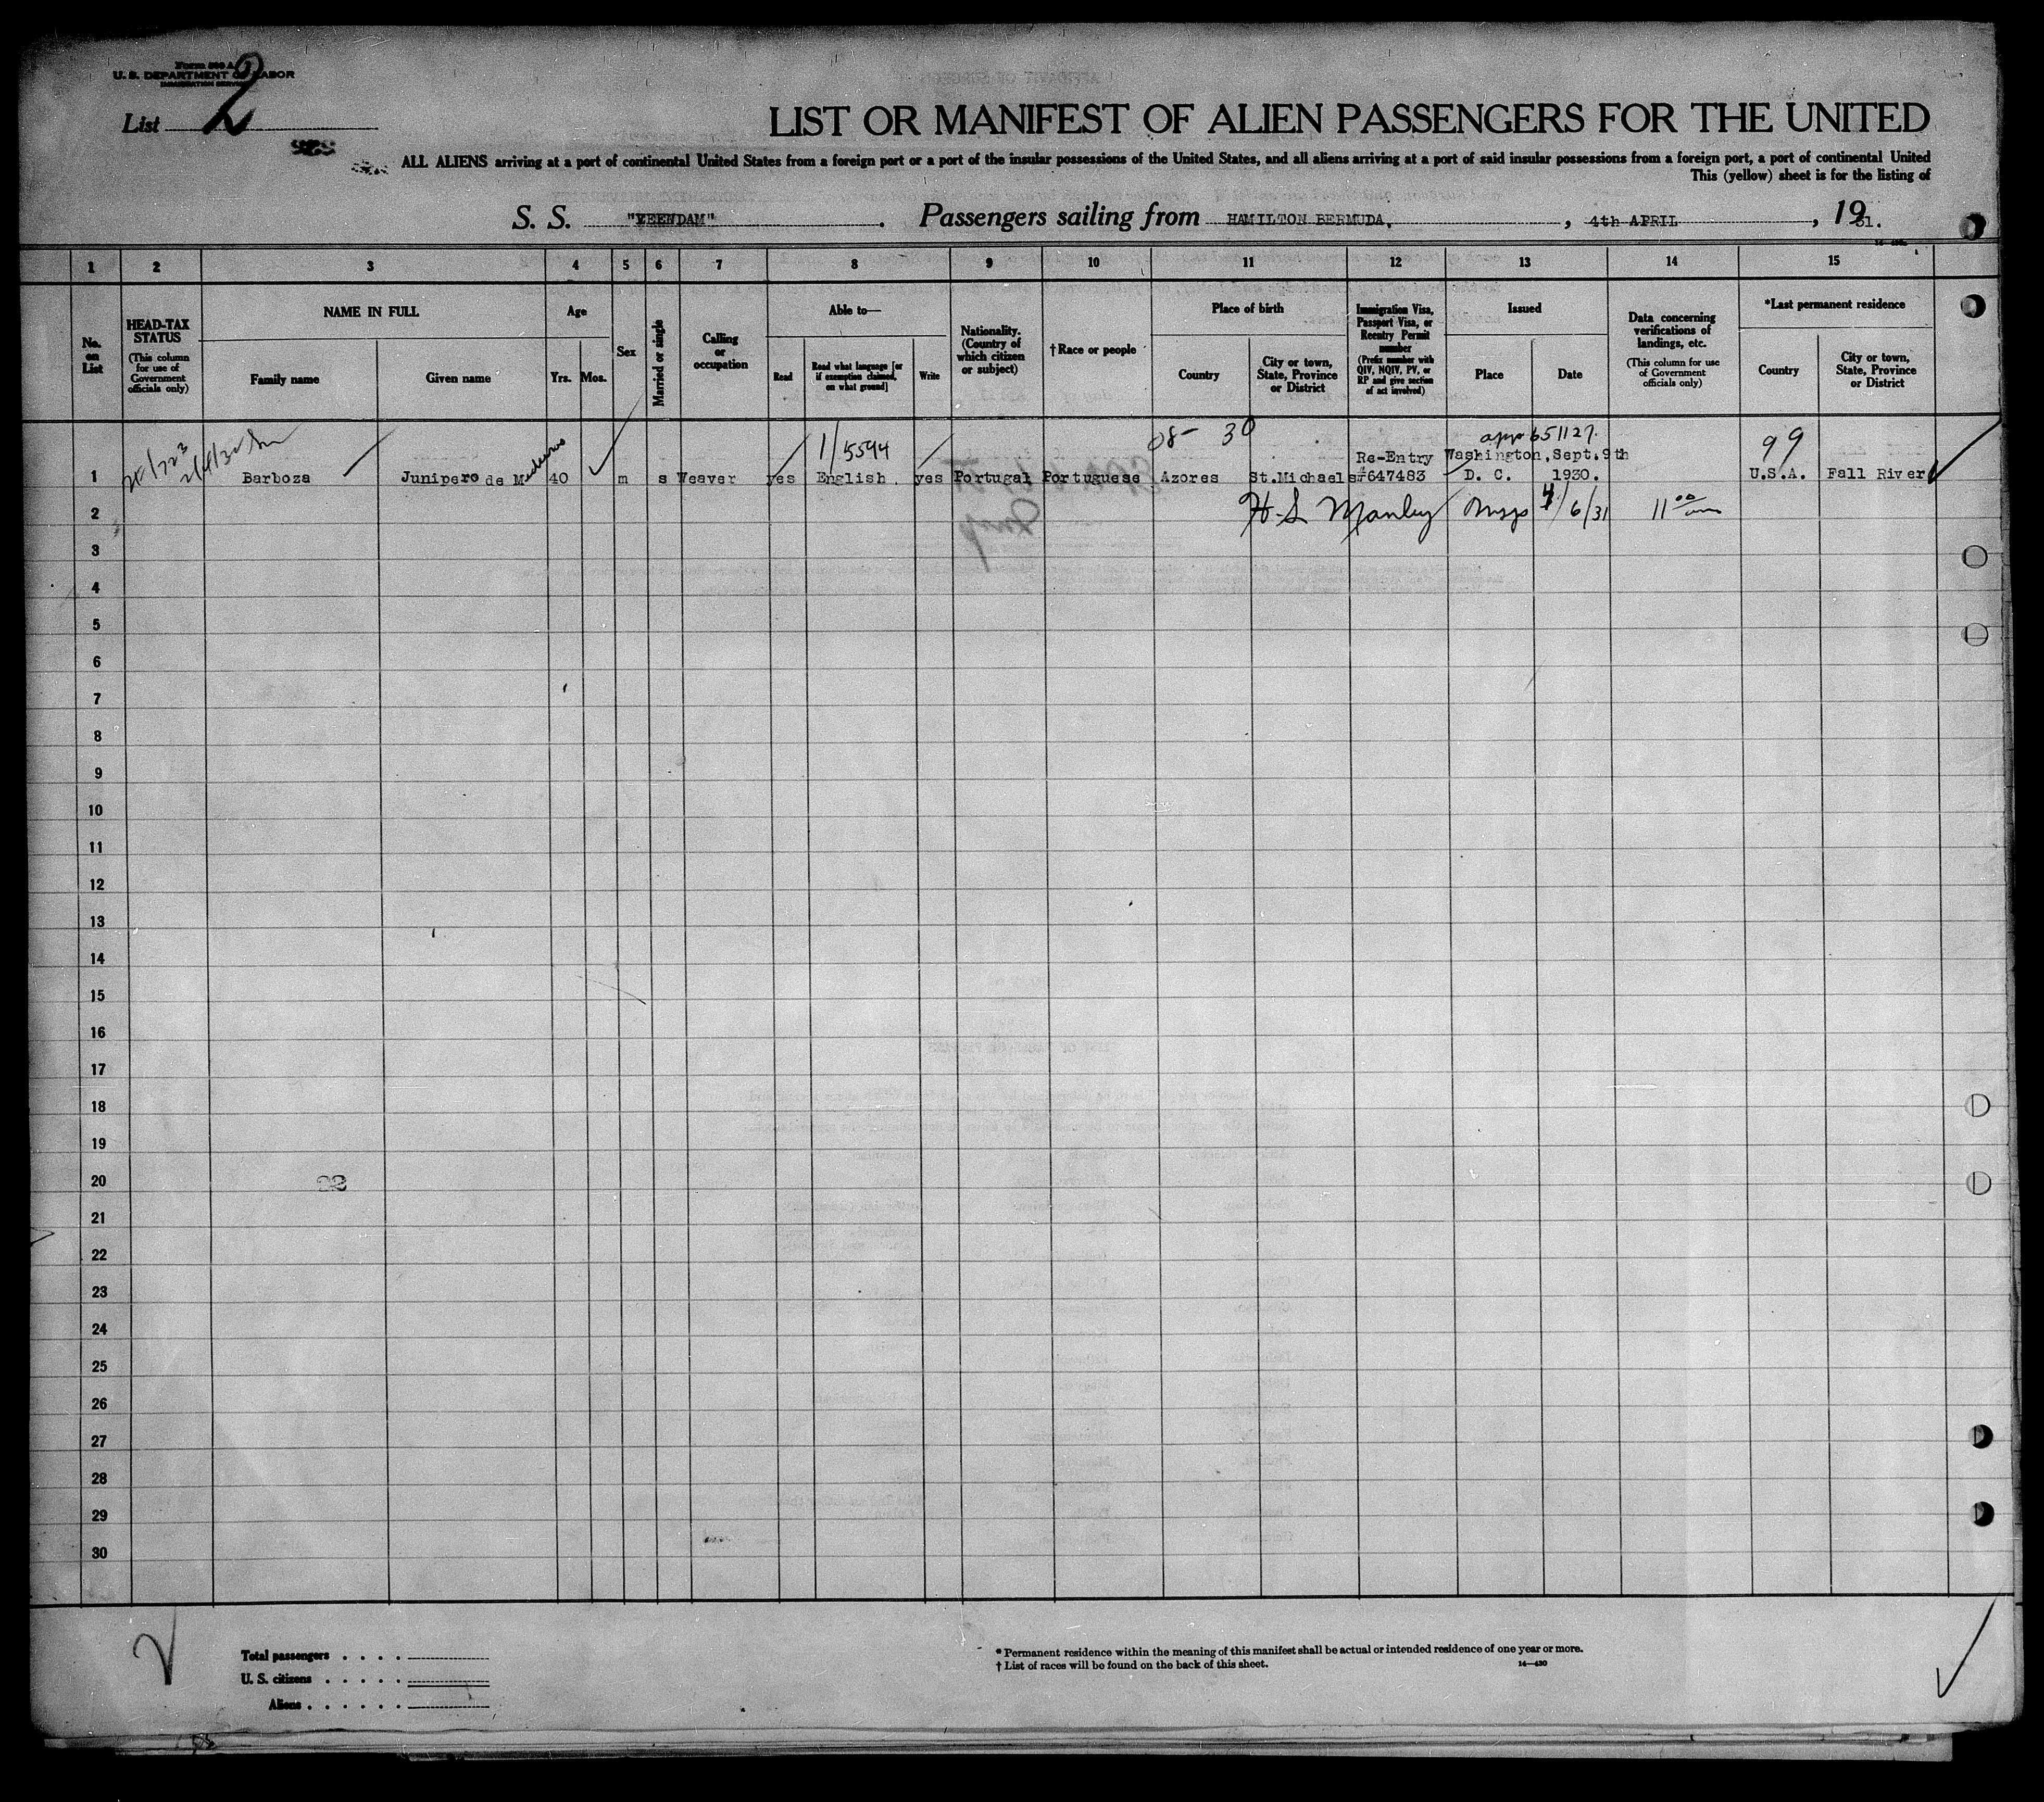 Form 500 A
U. S. DEPARTMENT OF LABOR
IMMIGRATION SERVICE
List 2
LIST OR MANIFEST OF ALIEN PASSENGERS FOR THE UNITED
ALL ALIENS arriving at a port of continental United States from a foreign port or a port of the insular possessions of the United States, and all aliens arriving at a port of said insular possessions from a foreign port, a port of continental United
This (yellow) sheet is for the listing of
S. S. "VEENDAM". Passengers sailing from HAMILTON BERMUDA, , 4th APRIL , 1931.
1 2 3 4 5 6 7 8 9 10 11 12 13 14 15
No. on List
HEAD-TAX STATUS
(This column for use of Government officials only)
NAME IN FULL
Family name
Given name
Age
Yrs. Mos.
Sex
Married or single
Calling or occupation
Able to—
Read
Read what language [or if exemption claimed, on what ground]
Write
Nationality. (Country of which citizen or subject)
†Race or people
Place of birth
Country
City or town, State, Province or District
Immigration Visa, Passport Visa, or Reentry Permit number
(Prefix number with QIV, NQIV, PV, or RP and give section of act involved)
Issued
Place
Date
Data concerning verifications of landings, etc.
(This column for use of Government officials only)
*Last permanent residence
Country
City or town, State, Province or District
1/5594 08- 30 651127. 99
Re-Entry Washington, Sept. 9th
1 Barboza Junipero de Medeiros 40 m s Weaver yes English. yes Portugal Portuguese Azores St.Michaels #647483 D. C. 1930. U.S.A. Fall River
2 H S Manley 4/6/31 11 00
3
4
5
6
7
8
9
10
11
12
13
14
15
16
17
18
19
20 22
21
22
23
24
25
26
27
28
29
30
Total passengers . . . .
U. S. citizens . . . . .
Aliens . . . . . .
* Permanent residence within the meaning of this manifest shall be actual or intended residence of one year or more.
† List of races will be found on the back of this sheet.
14—430